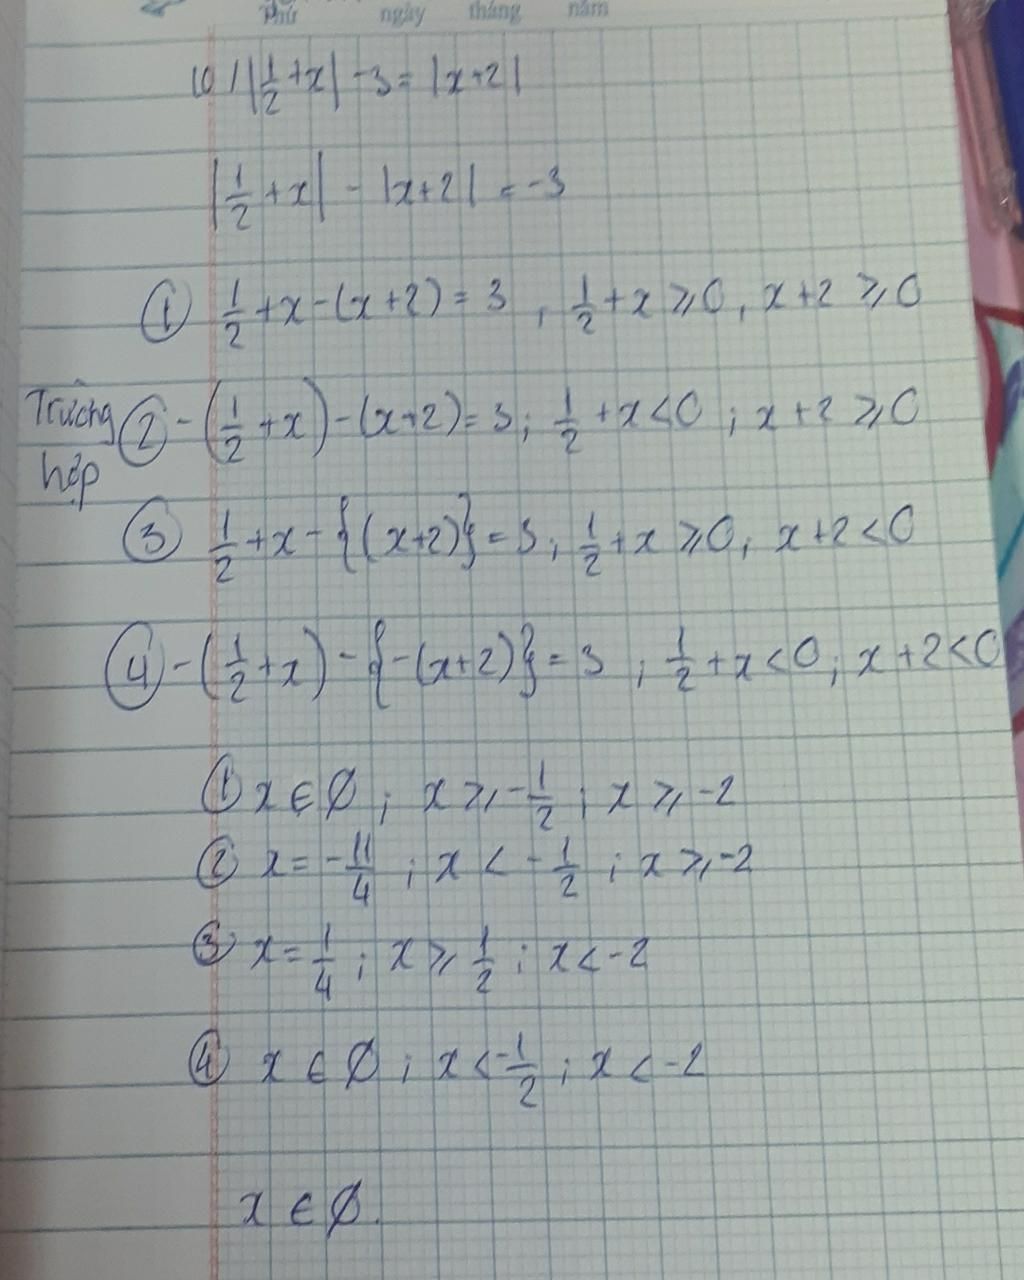 Thứ ngày tháng năm
10/ |1/2 + x| - 3 = |x+2|
|1/2 + x| - |x+2| = -3
① 1/2 + x - (x+2) = 3 , 1/2 + x ⩾ 0, x+2 ⩾ 0
Trường hợp ② - (1/2 + x) - (x+2) = 3; 1/2 + x < 0 ; x + 2 ⩾ 0
③ 1/2 + x - {(x+2)} = 3; 1/2 + x ⩾ 0; x+2 < 0
④ - (1/2 + x) - {-(x+2)} = 3 ; 1/2 + x < 0; x + 2 < 0
① x ∈ ∅ ; x ⩾ -1/2 ; x ⩾ -2
② x = -11/4 ; x < -1/2 ; x ⩾ -2
③ x = 1/4 ; x ⩾ 1/2 ; x < -2
④ x ∈ ∅ ; x < -1/2 ; x < -2
x ∈ ∅.